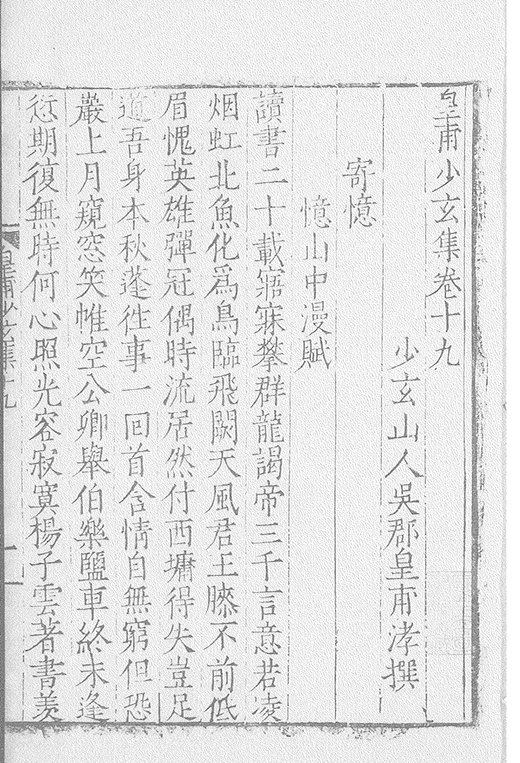 皇甫少玄集卷十九
少玄山人吳郡皇甫涍撰
寄憶
憶山中漫賦
讀書二十載寤寐攀群龍謁帝三千言意若凌
烟虹北魚化爲鳥臨飛闕天風君王賸不前低
眉愧英雄彈冠偶時流居然付西墉得失豈足
道吾身本秋蓬徃事一回首含情自無窮但恐
巖上月窺窓笑帷空公卿舉伯樂鹽車終未逢
衍期復無時何心照光容寂寞楊子雲著書羨
皇甫少玄集十九
一